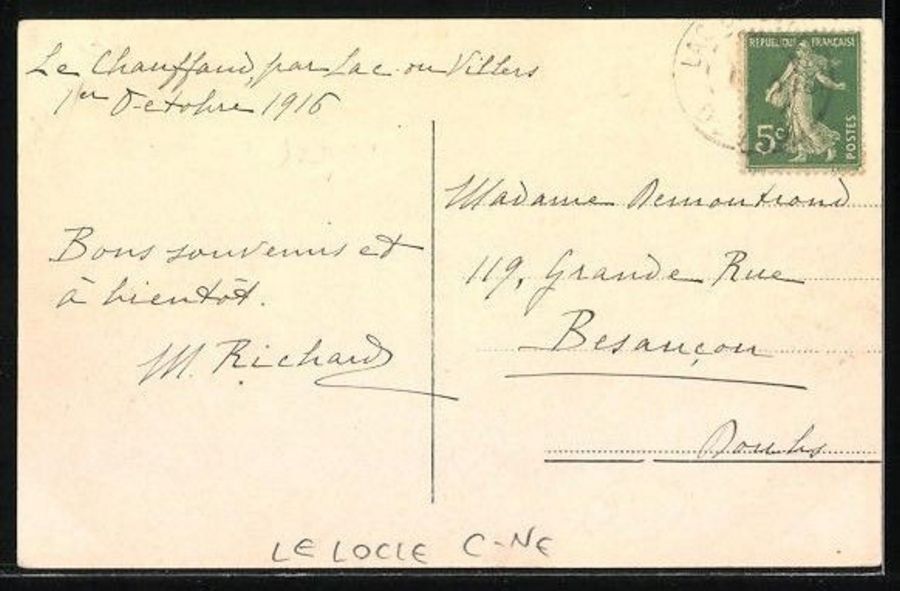 Le Chauffaud, par Lac-ou-Villers
1er Octobre 1916
REPUBLIQUE FRANÇAISE
5c
POSTES
Bons souvenirs et
à bientôt.
M. Richard
Madame Demontrond
119, Grande Rue
Besançon
Doubs
LE LOCLE C-NE